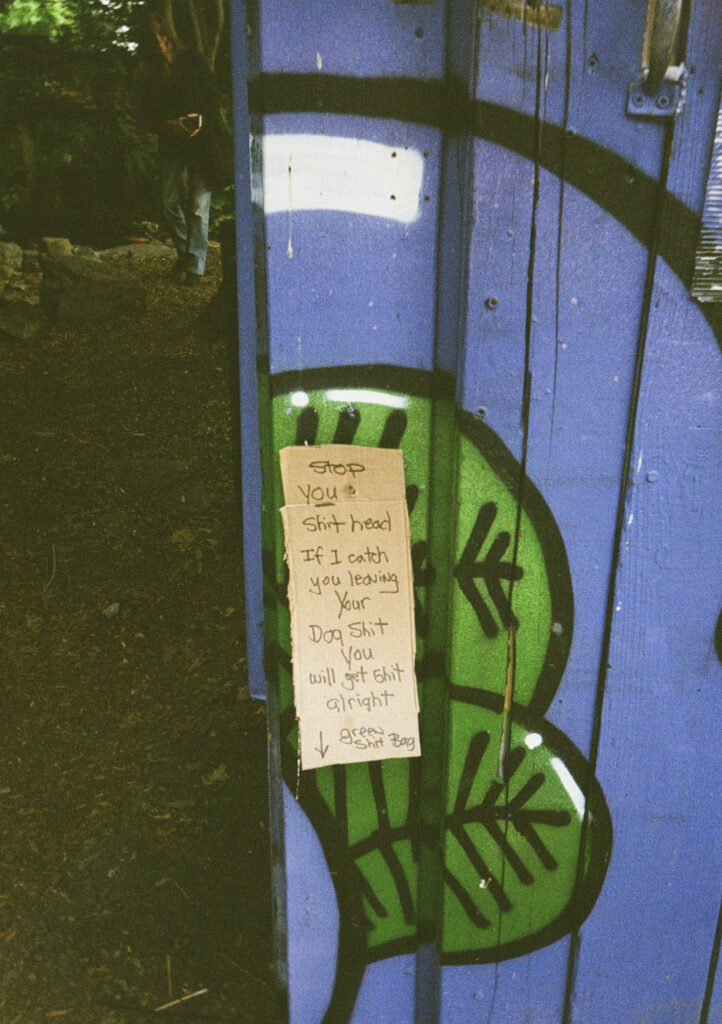 Stop
you
Shit head
If I catch
you leaving
Your
Dog Shit
You
will get Shit
alright
↓ green
Shit Bag